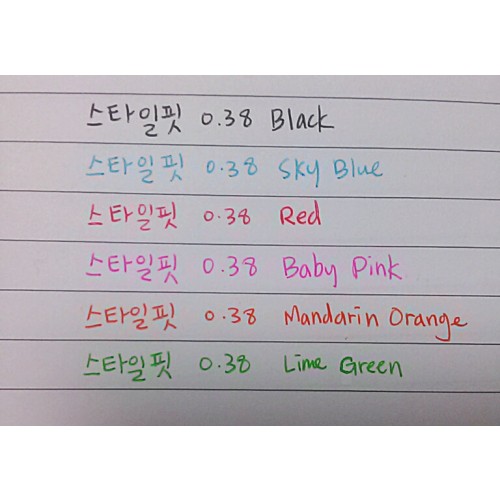 스타일핏 0.38 Black
스타일핏 0.38 Sky Blue
스타일핏 0.38 Red
스타일핏 0.38 Baby Pink
스타일핏 0.38 Mandarin Orange
스타일핏 0.38 Lime Green